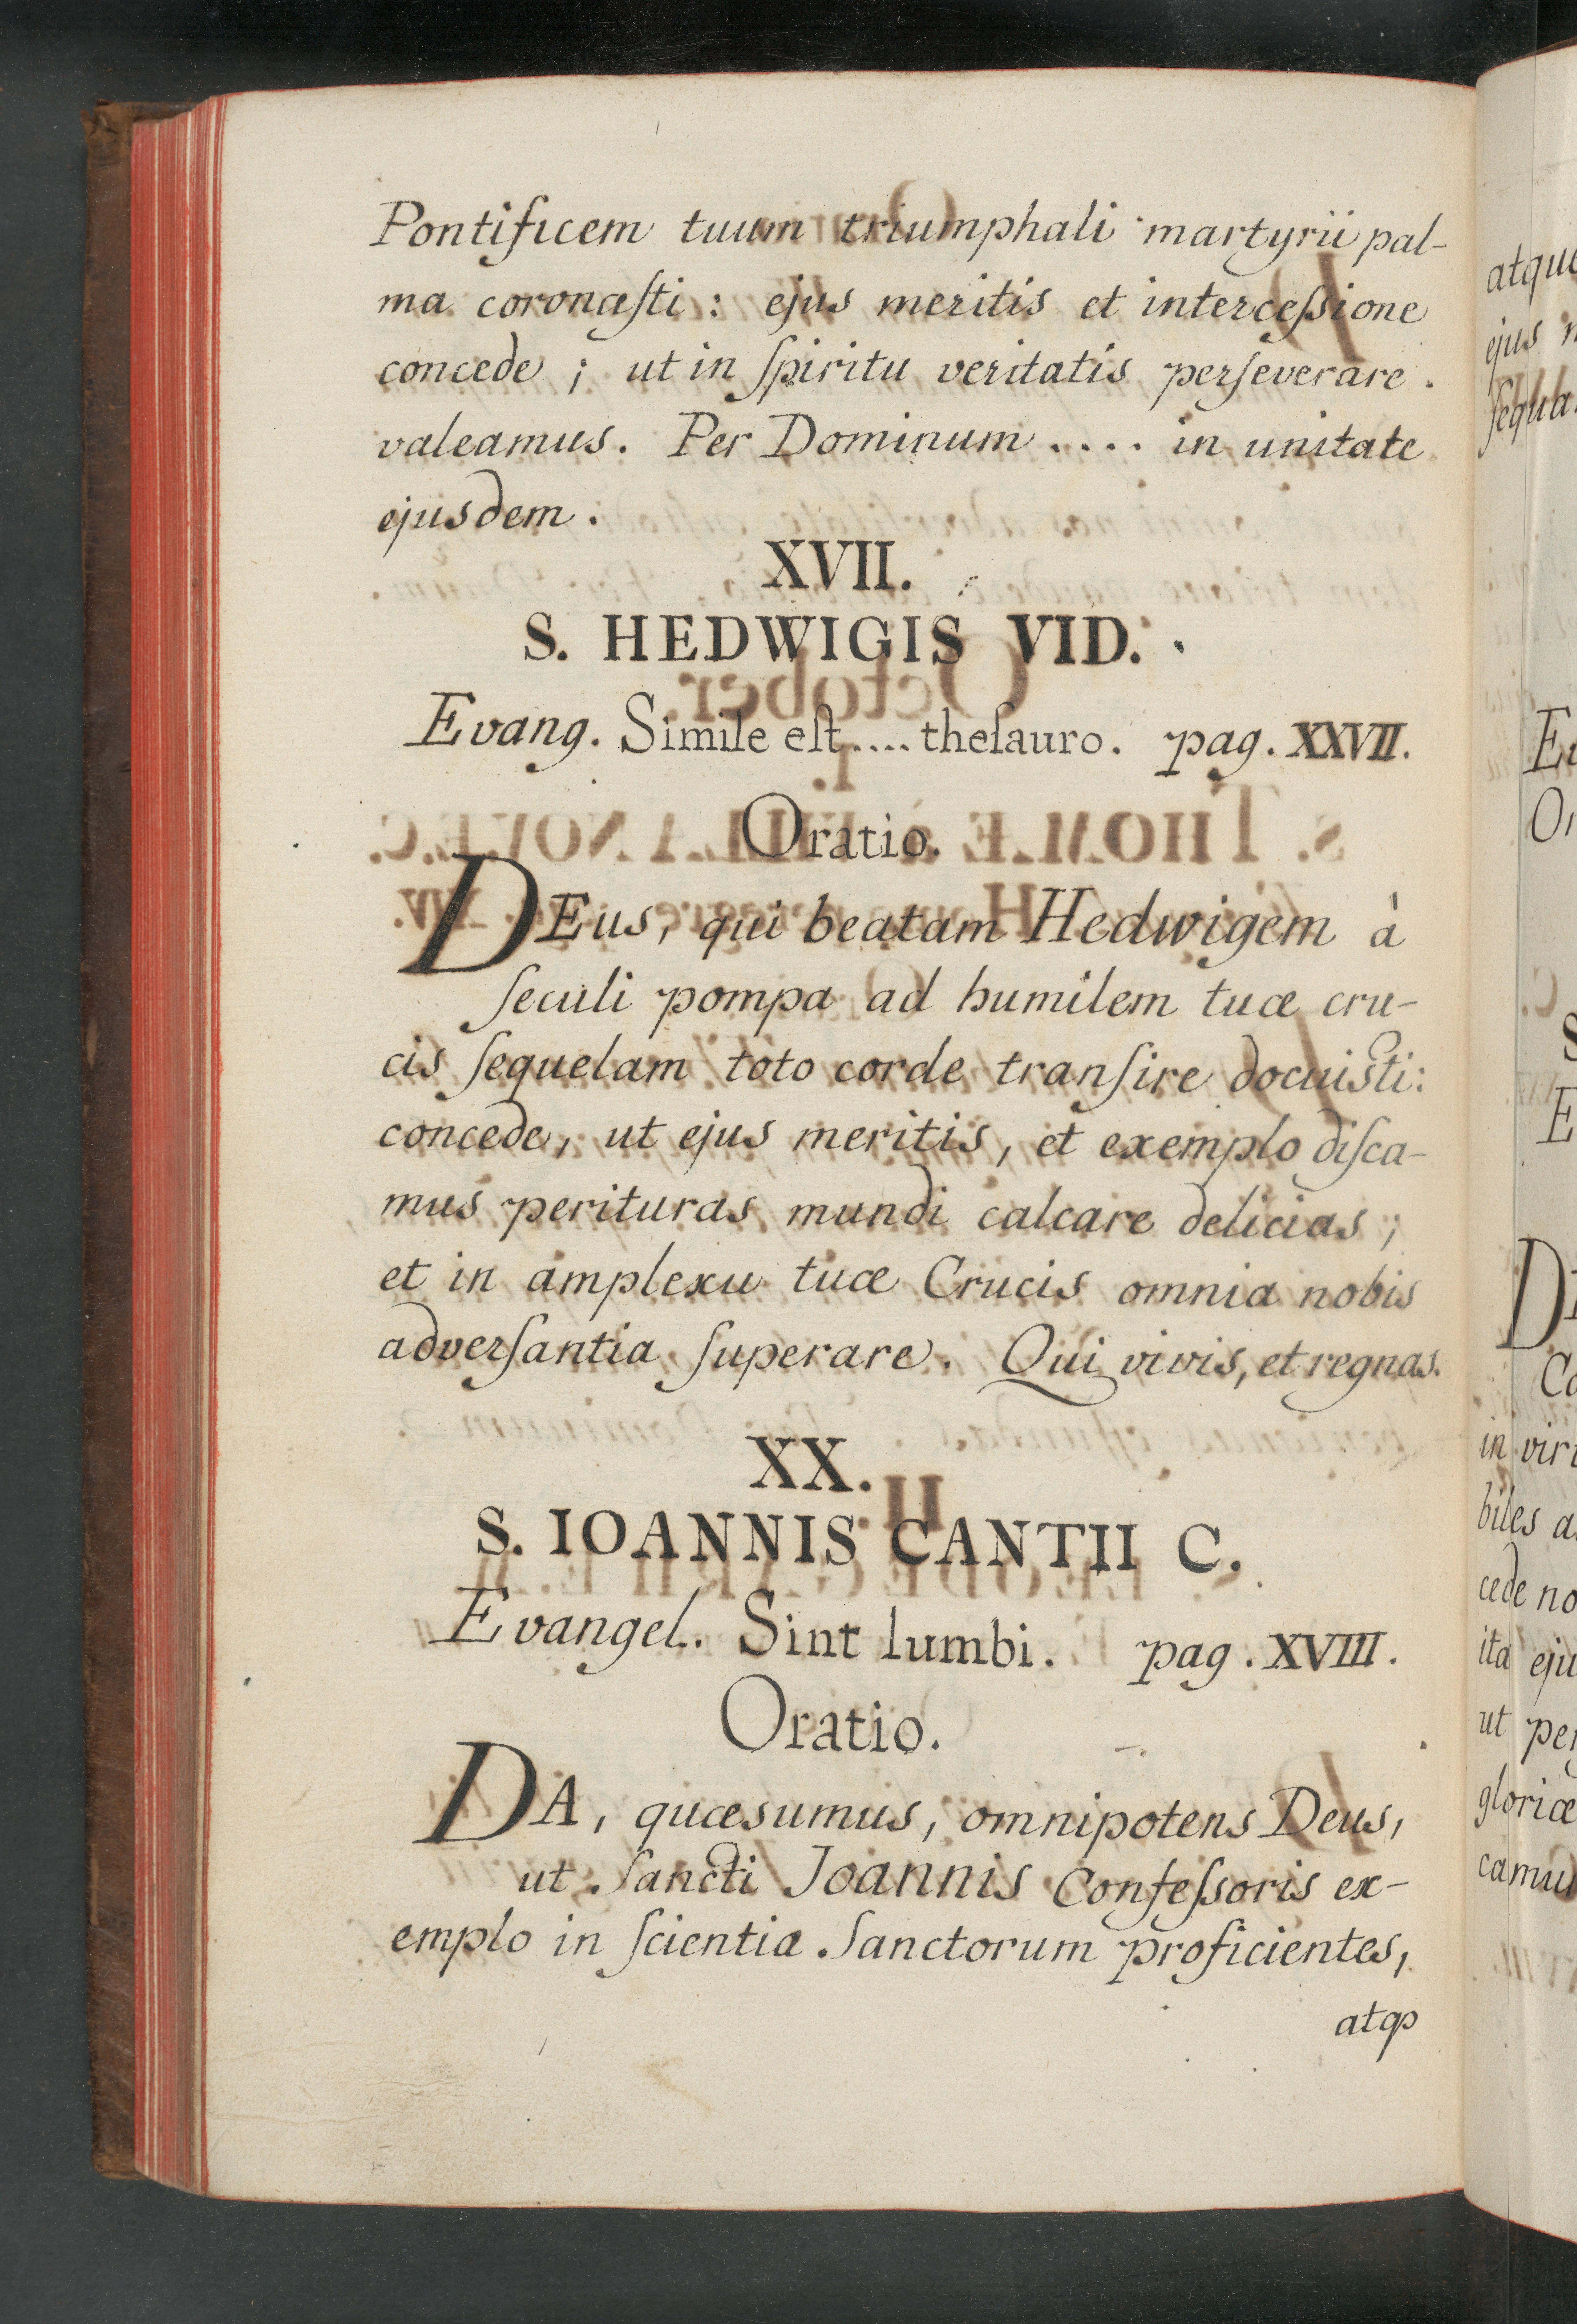 Pontificem tuum triumphali martyrii pal-
ma coronaſti : ejus meritis et interceſsione
concede ; ut in ſpiritu veritatis perſeverare .
valeamus. Per Dominum .... in unitate
ejusdem.
XVII.
S. HEDWIGIS VID.
Evang. Simile eſt .... theſauro. pag. XXVII.
Oratio.
DEus, qui beatam Hedwigem à
ſeculi pompa ad humilem tuæ cru-
cis ſequelam toto corde tranſire docuisti:
concede, ut ejus meritis, et exemplo diſca-
mus perituras mundi calcare delicias ;
et in amplexu tuæ Crucis omnia nobis
adverſantia ſuperare. Qui vivis, et regnas.
XX.
S. IOANNIS CANTII C.
Evangel. Sint lumbi. pag. XVIII.
Oratio.
DA, quæsumus, omnipotens Deus,
ut Sancti Joannis Confeſsoris ex-
emplo in ſcientia Sanctorum proficientes,
atqꝫ
atque
ejus
D
in
biles
cede
ita
ut
gloriæ